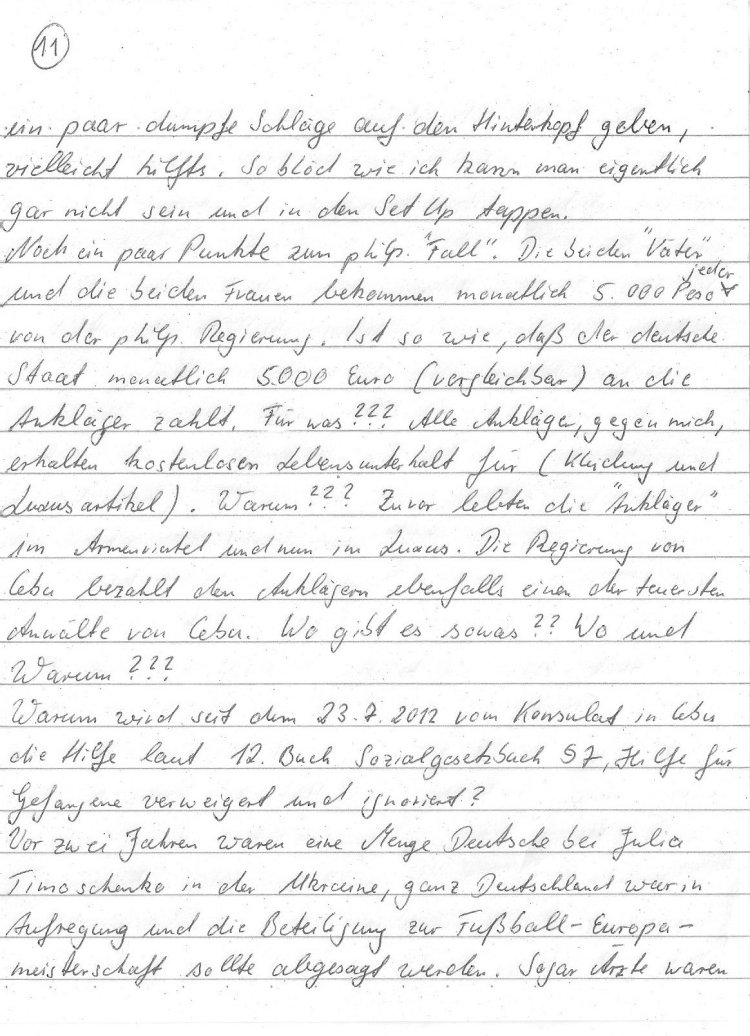 11
ein paar dumpfe Schläge auf den Hinterkopf geben,
vielleicht hilfts. So blöd wie ich kann man eigentlich
gar nicht sein und in den Set Up tappen.
Noch ein paar Punkte zum philp. "Fall". Die beiden "Väter"
jeder
und die beiden Frauen bekommen monatlich 5.000 Peso
von der philp. Regierung. Ist so wie, daß der deutsche
Staat monatlich 5000 Euro (vergleichbar) an die
Ankläger zahlt. Für was??? Alle Ankläger, gegen mich,
erhalten kostenlosen Lebensunterhalt für (Kleidung und
Luxusartikel). Warum??? Zuvor lebten die "Ankläger"
im Armenviertel und nun im Luxus. Die Regierung von
Cebu bezahlt den Anklägern ebenfalls einen der teuersten
Anwälte von Cebu. Wo gibt es sowas?? Wo und
Warum???
Warum wird seit dem 23.7.2012 vom Konsulat in Cebu
die Hilfe laut 12. Buch Sozialgesetzbuch §7, Hilfe für
Gefangene verweigert und ignoriert?
Vor zwei Jahren waren eine Menge Deutsche bei Julia
Timoschenko in der Ukraine, ganz Deutschland war in
Aufregung und die Beteiligung zur Fußball-Europa-
meisterschaft sollte abgesagt werden. Sogar Ärzte waren